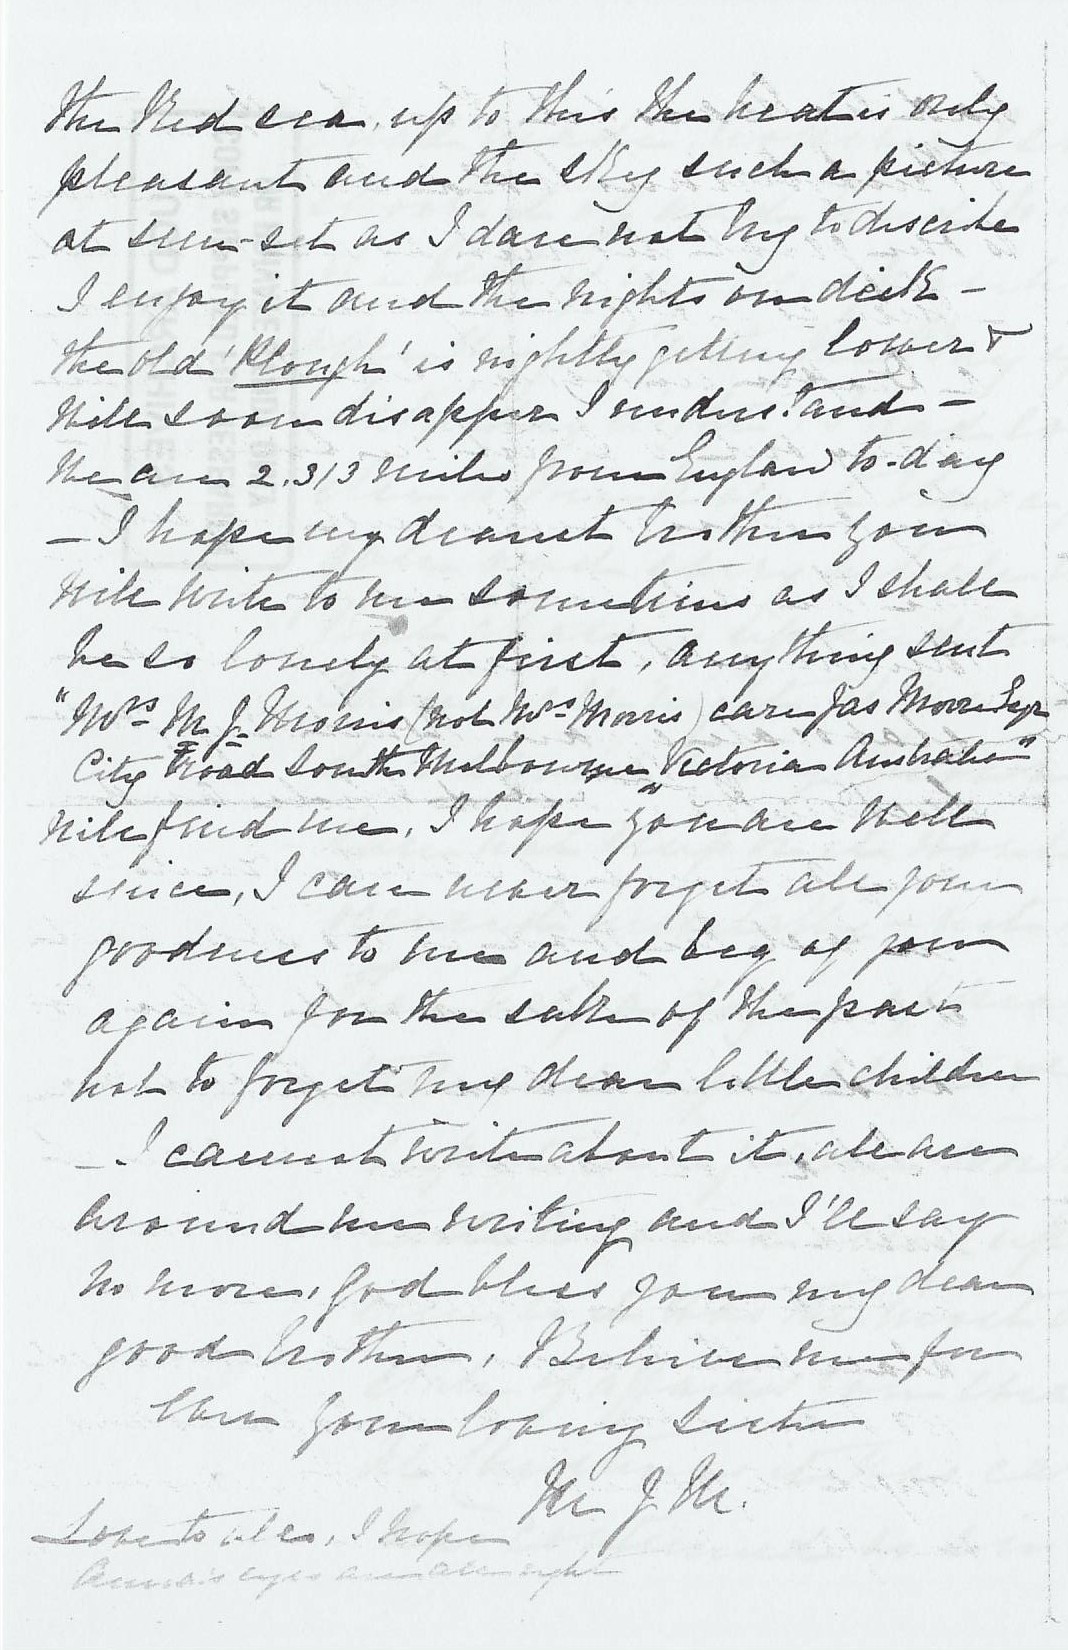 the Red sea, up to this the heat is only
pleasant and the sky such a picture
at sun-set as I dare not try to discribe
I enjoy it and the nights on deck –
the old 'Plough' is nightly getting lower &
will soon disapper I understand –
We are 2.313 miles from England to-day
– I hope my dearest brother you
will write to me sometimes as I shall
be so lonely at first, anything sent
"Mrs M. J. Morris (not Mrs Morris) care Jas Moore Esqr
City road South Melbourne Victoria Australia"
will find me, I hope you are well
since, I can never forget all your
goodness to me and beg of you
again for the sake of the past
not to forget my dear little children
– I cannot write about it, all are
around me writing and I'll say
no more, God bless you my dear
good brother, Believe me for
ever your loving sister
M J M.
Love to all, I hope
Anna's eyes are all right